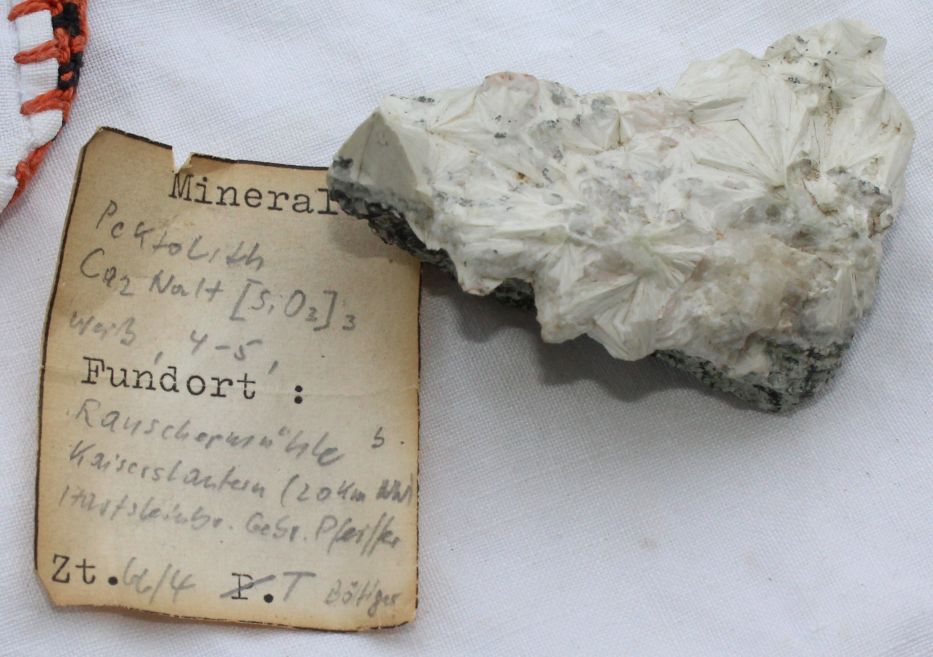 Mineral
Pektolith
Ca2 NaH [SiO3]3
weiß, 4-5,
Fundort :
Rauschermühle b.
Kaiserslautern (20 km NW)
Hartsteinbr. Gebr. Pfeiffer
Zt. 66/4 P. T Böttiger